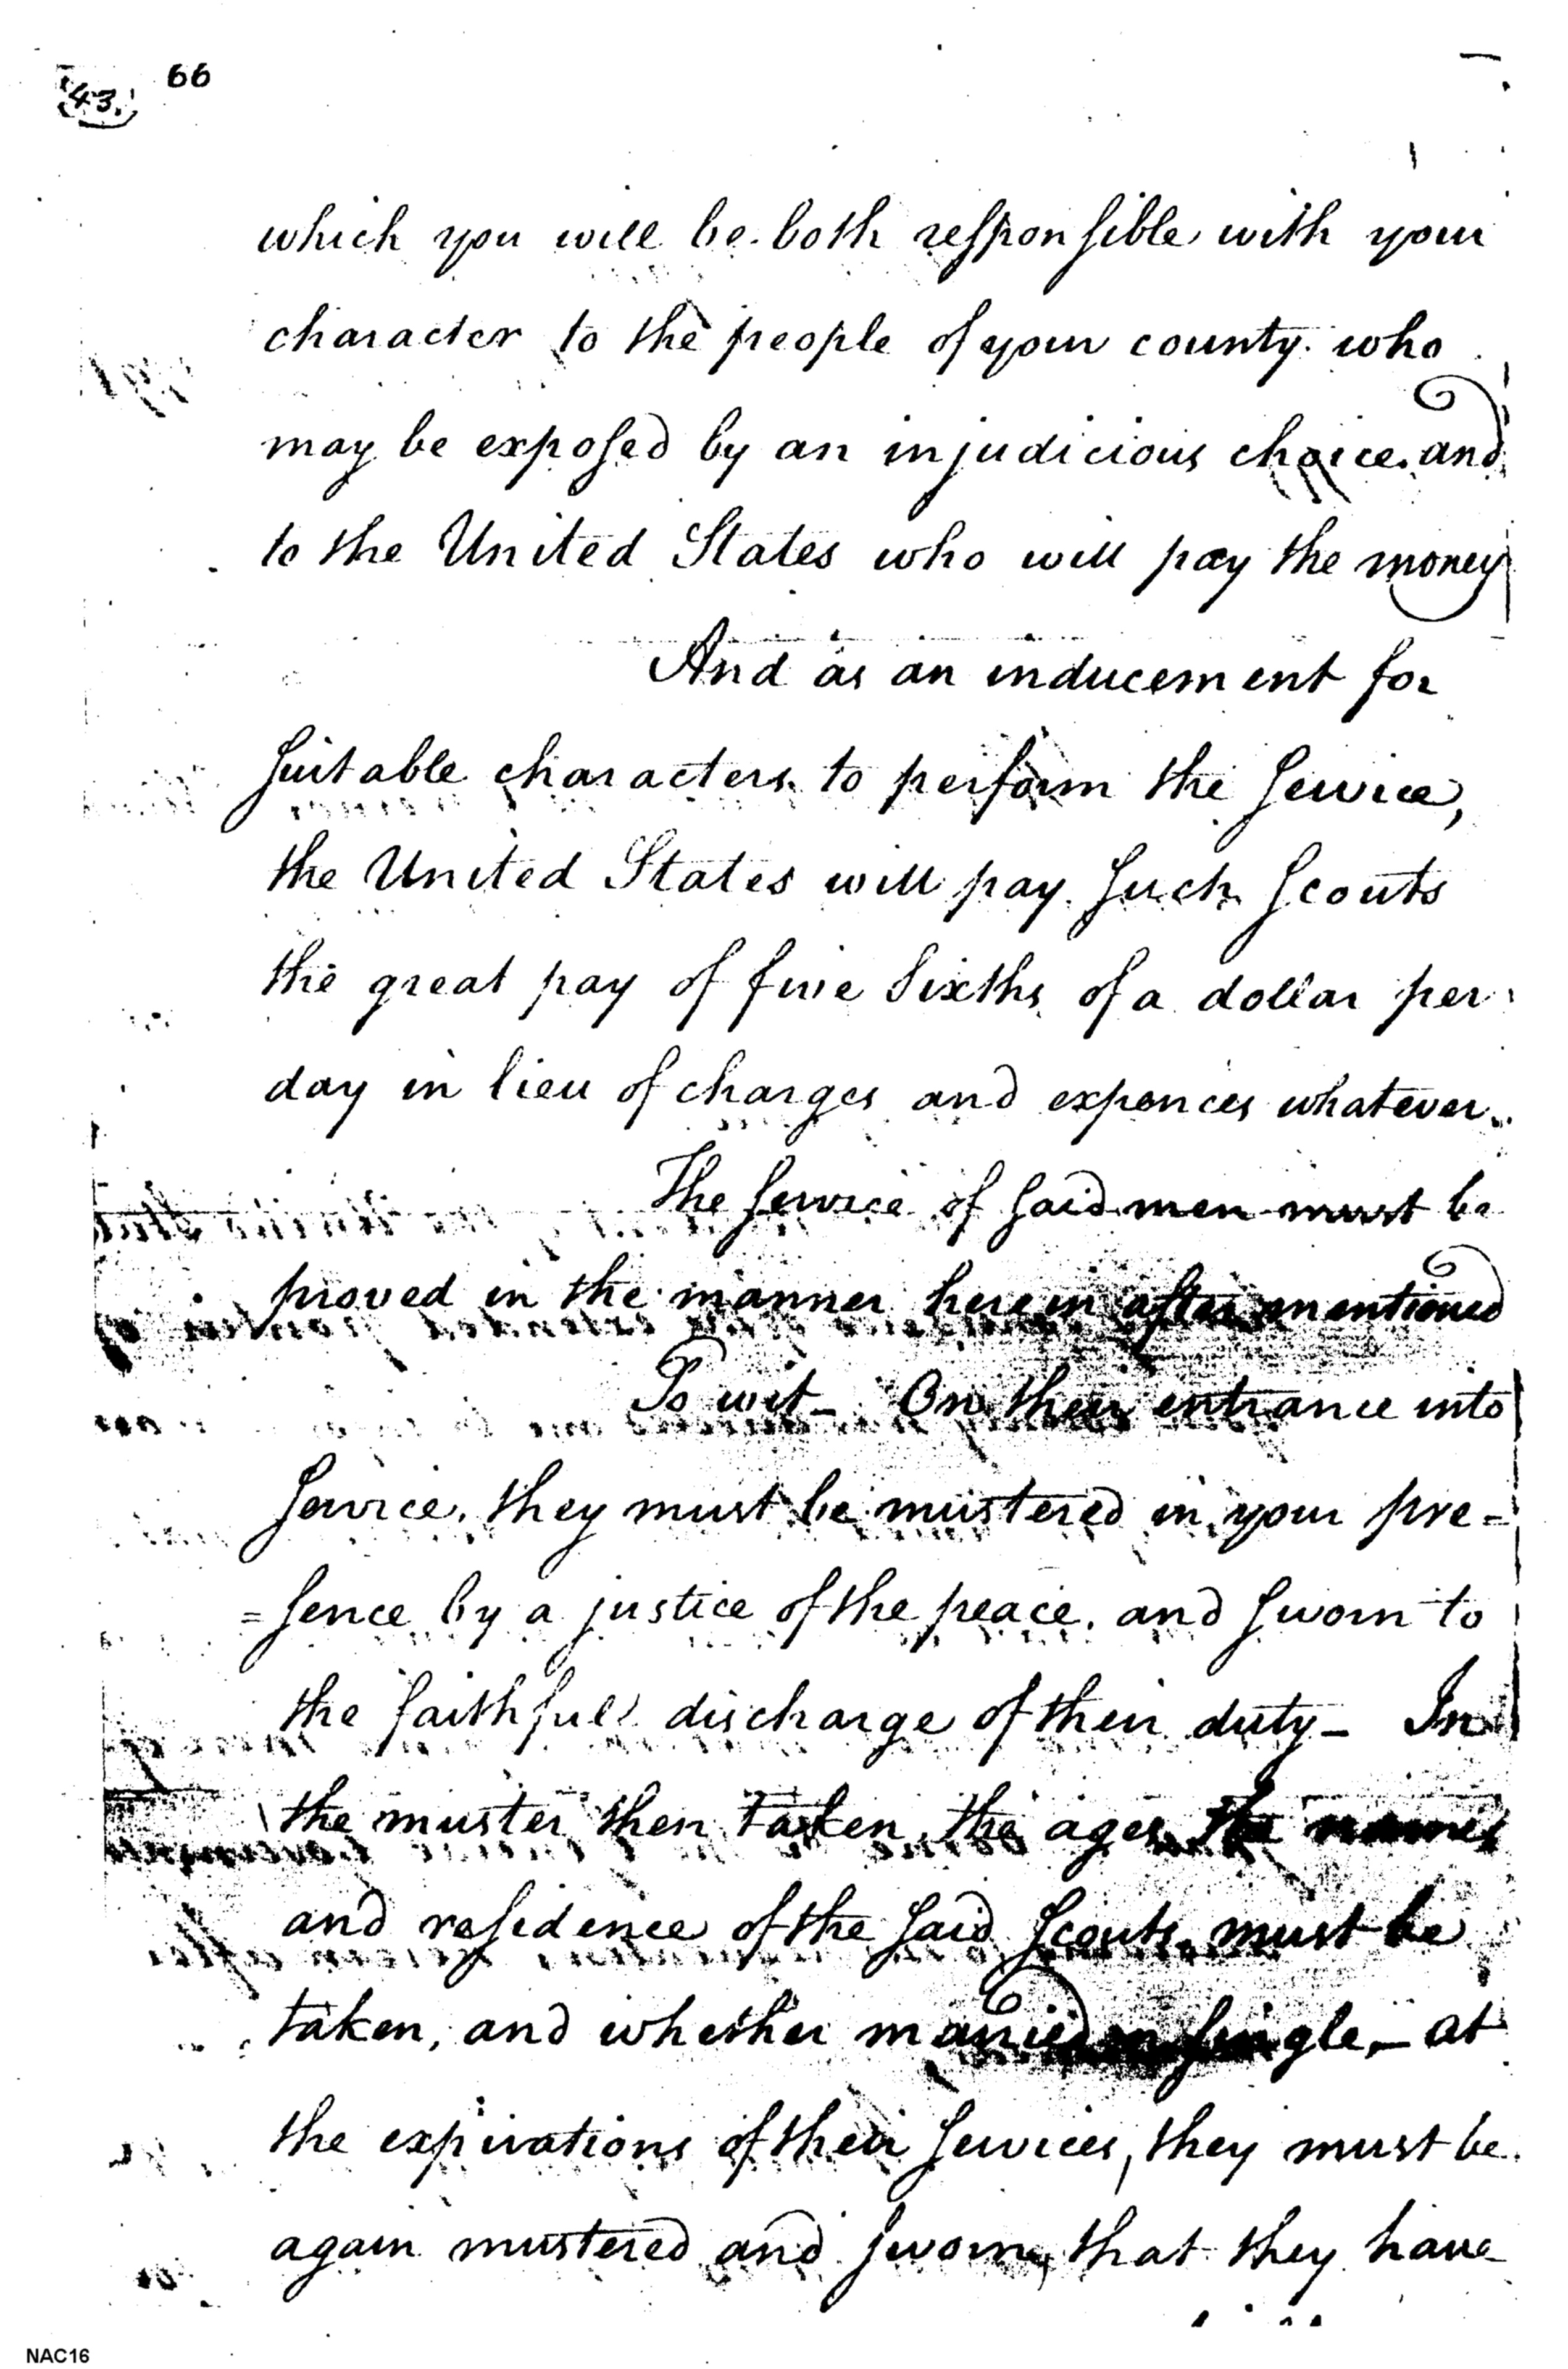 43.
66
which you will be both responsible with your
character to the people of your county who
may be exposed by an injudicious choice. and
to the United States who will pay the money
And as an inducement for
suitable characters to perform the service,
the United States will pay such scouts
the great pay of five sixths of a dollar per
day in lieu of charges and expences whatever.
The service of said men must be
proved in the manner herein after mentioned
To wit_ On their entrance into
service, they must be mustered in your pre=
=sence by a justice of the peace, and sworn to
the faithful discharge of their duty_ In
the muster then taken, the ages, the names
and residence of the said scouts, must be
taken, and whether married or single,_ at
the expirations of their services, they must be
again mustered and sworn, that they have
NAC16